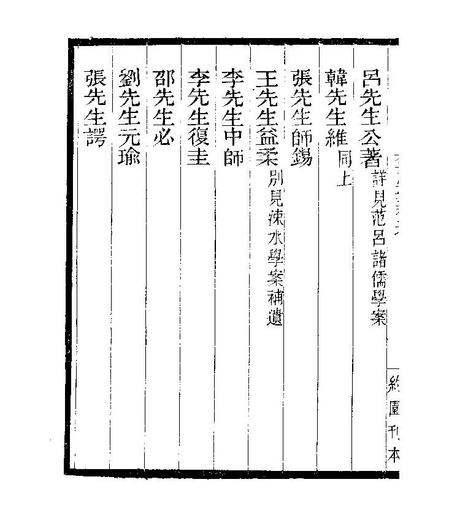 呂先生公著詳見范呂諸儒學案
韓先生維同上
張先生師錫
王先生益柔別見涑水學案補遺
李先生中師
李先生復圭
邵先生必
劉先生元瑜
張先生諤
約園刊本